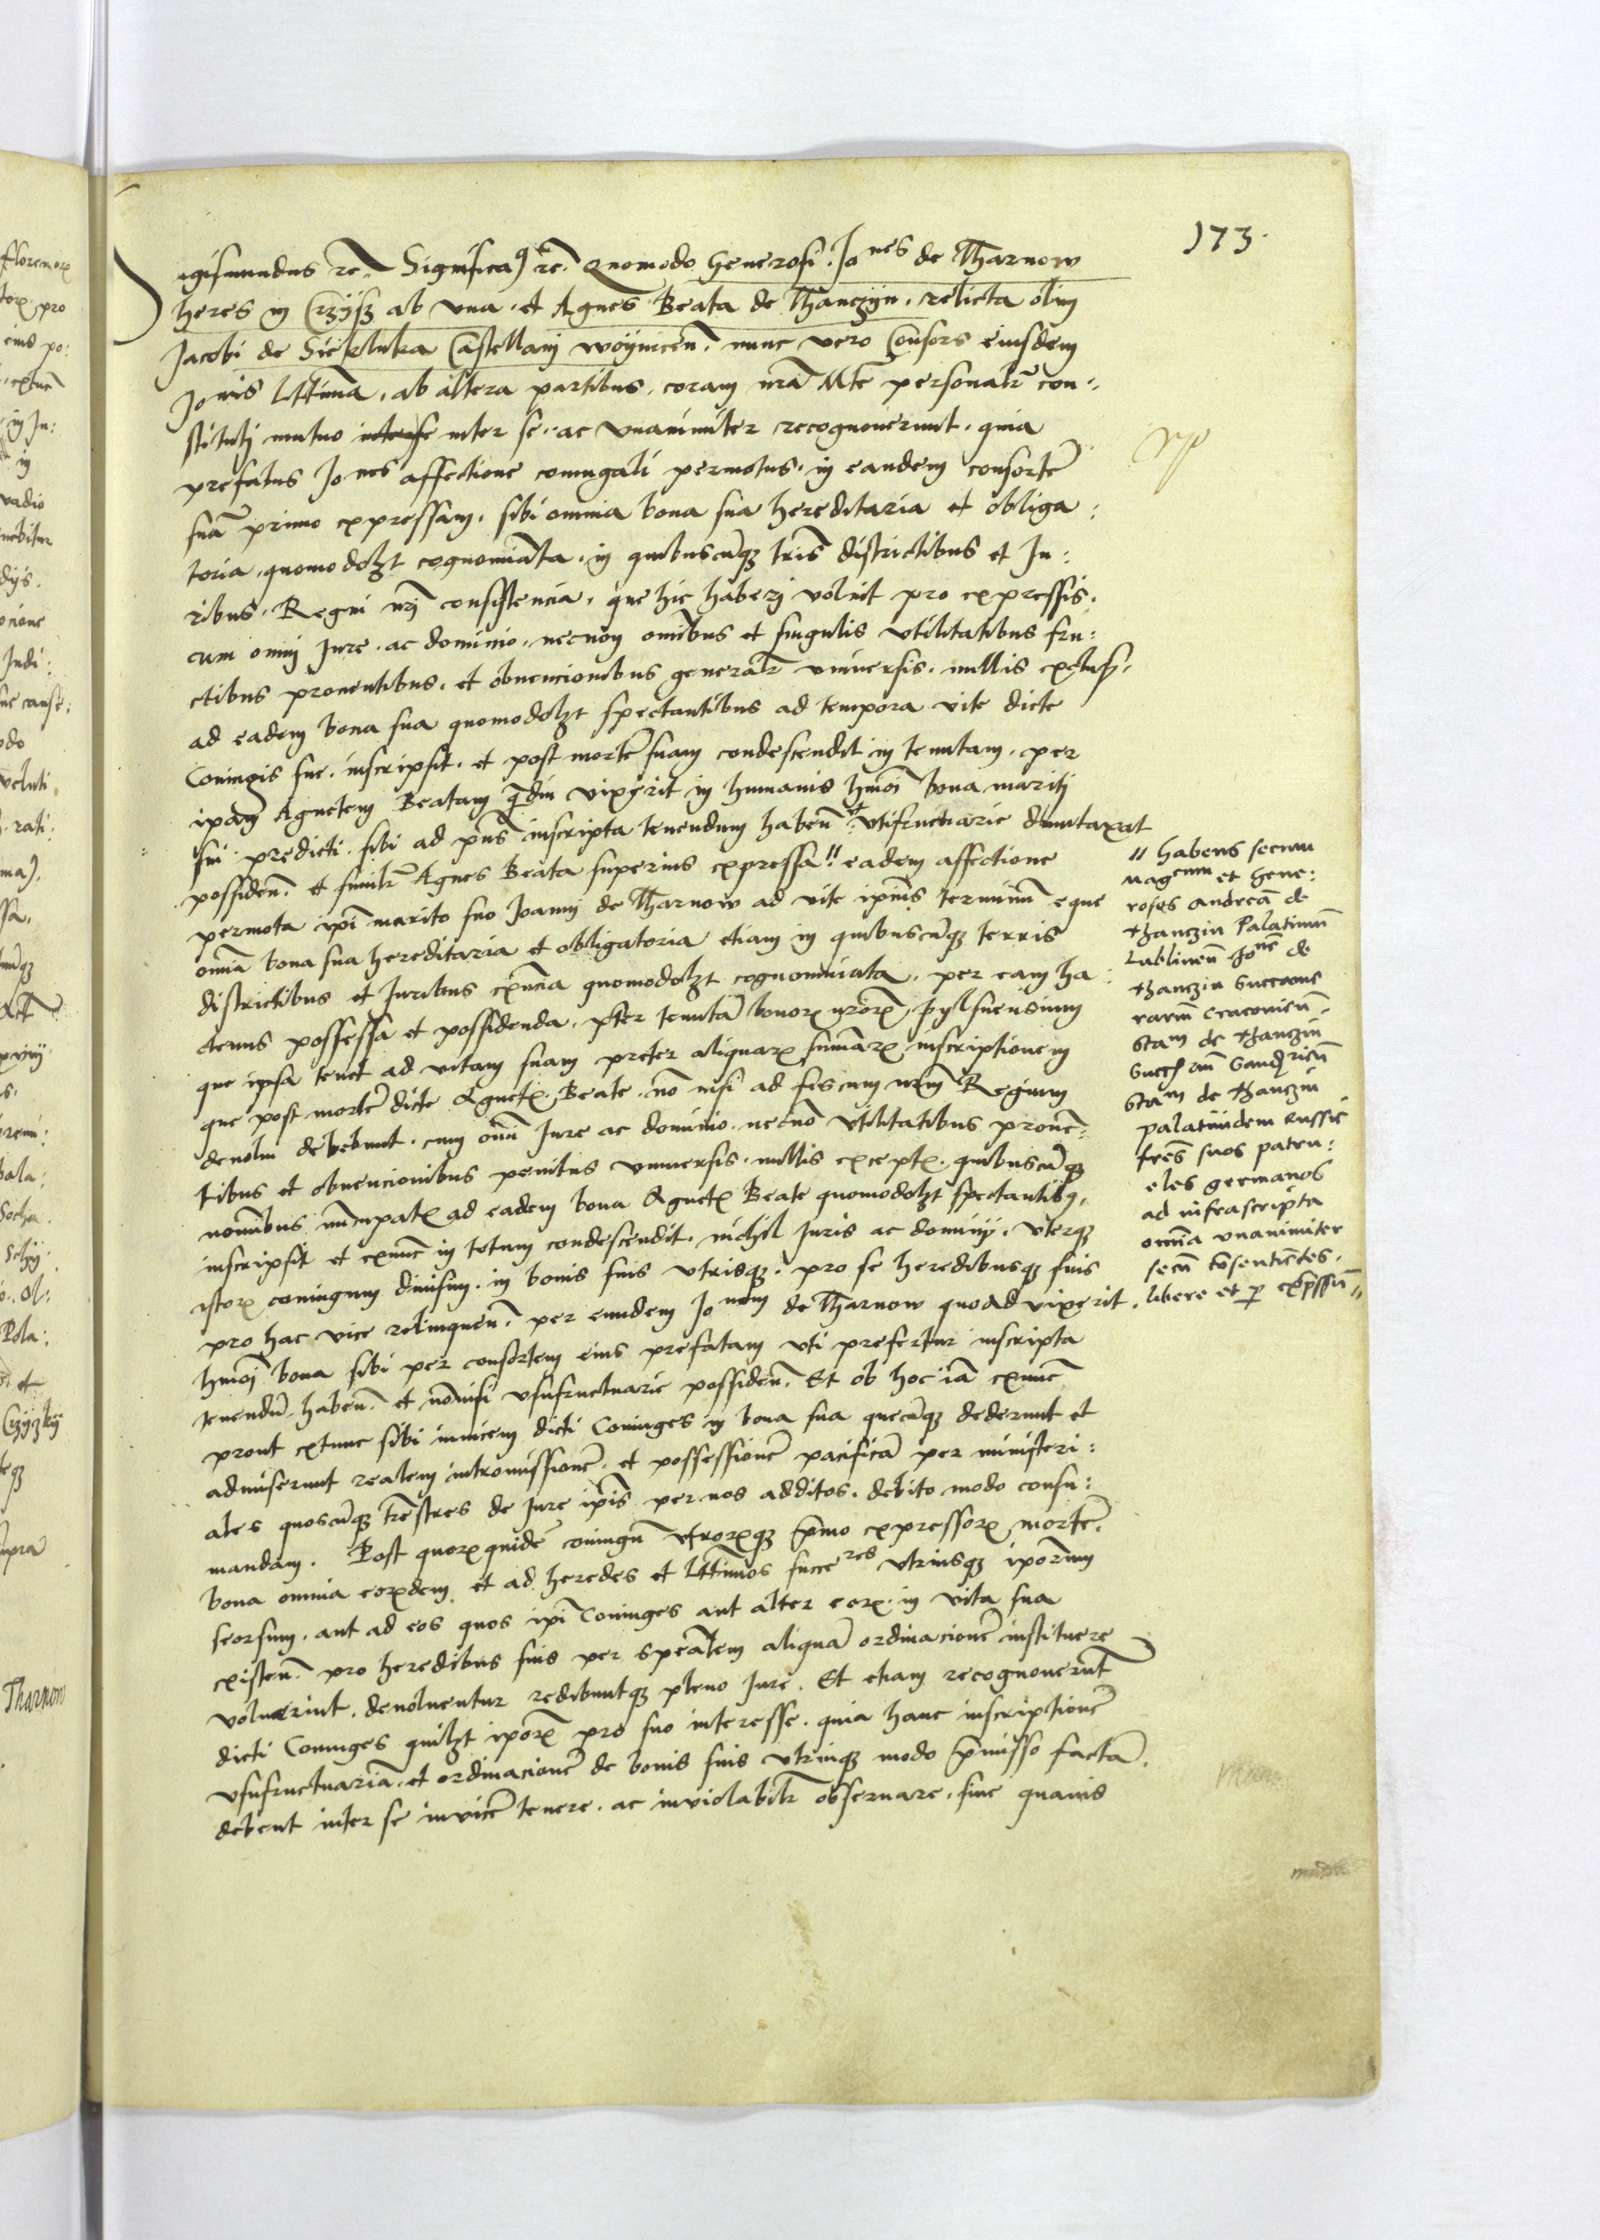 173.
Sigismundus rc. Significa) rc. Quomodo Generosi Jones de Tharnow
heres in Crzÿsz ab una et Agnes Beata de Thanczÿn relicta olim
Jacobi de Siekluka Castellani woÿnicen. nunc vero Consors eiusdem
Jonis Lttima, ab altera partibus, coram nra Mte personalr con:
stituti mutuo inter se ac vnanimiter recognouerunt, quia
prefatus Jones affectione coniugali permotus, in eandem consorte
sua primo expressam, sibi omnia bona sua hereditaria et obliga:
toria, quomodolzt cognominata, in quibuscuqz tris districtibus et Ju:
ribus, Regni nri consistencia, que hic haberi voluit pro expressis,
cum omni Jure, ac dominio, necnon omibus et singulis vtilitatibus fru:
ctibus prouentibus, et obuencionibus generalr vniuersis, nullis exclusis,
ad eadem bona sua quomodolzt spectantibus ad tempora vite dicte
Coniugis sue, inscripsit, et post morte suam condescendit in tenutam, per
ipam Agnetem Beatam qdiu vixerit in humanis hmoi bona mariti
sui predicti sibi ad pns inscripta tenendum haben et vtifructuarie duntaxat
possiden. et similr Agnes Beata superius expressa // eadem affectione
permota ipi marito suo Joanni de Tharnow ad vite ipius terminu eque
omia bona sua hereditaria et obligatoria etiam in quibuscuqz terris
districtibus et Juribus exncia quomodolzt cognominata, per eam ha:
ctenus possessa et possidenda, pter tenuta bonor nror pylsnensium
que ipsa tenet ad vitam suam preter aliquar sumar inscriptionem
que post morte dicte Agnet Beate no nisi ad fiscum nrm Regium
deuolui debebunt, cum omi Jure ac dominio necno vtilitatibus prouen:
tibus et obuencionibus penitus vniuersis, nullis except, quibuscuqz
nominibus nuncupat ad eadem bona Agnet Beate quomodolzt spectantibq,
inscripsit et exnunc in totum condescendit, nichil Juris ac dominÿ, vterqz
istor coniugum diuisim, in bonis suis vtrisqz, pro se heredibusqz suis
pro hac vice relinquen. per eundem Jonem de Tharnow quoad vixerit,
hmoi bona sibi per consortem eius prefatam vti prefertur inscripta
tenendu haben. et nonisi vsufructuarie possiden. Et ob hoc ia exnunc
prout extunc sibi inuicem dicti Coniuges in bona sua quecuqz dederunt et
admiserunt realem intromissione, et possessione pacifica per ministeri:
ales quoscuqz trestres de Jure ipis per nos additos, debito modo consu:
mandam. Post quorquide coniugu vtrorqz pmo expressor morte,
bona omnia eordem et ad heredes et Lttimos succeres vtriusqz iporum
seorsum, aut ad eos quos ipi Coniuges aut alter eor in vita sua
existen. pro heredibus suis per spealem aliqua ordinacione instituere
voluerint, deuoluentur redibuntqz pleno Jure. Et etiam recognouerunt
dicti Coniuges quilzt ipor pro suo interesse, quia hanc inscriptione
vsufructuaria, et ordinacione de bonis suis vtrinqz modo pmisso facta,
debent inter se inuice tenere, ac inviolabilr obseruare, sine quauis
// habens secum
Magcum et Gene:
rosos Andrea de
Thanczin Palatinu
Lublinen Jone de
Thanczin Succam
rariu Cracouien
Stam de Thanczin
Succam Sandzricu
Stam de Thanczin
palatindem Russie
fres suos patru:
eles germanos
ad infrascripta
omia vnanimiter
secu consentietes,
libere et p expssu //